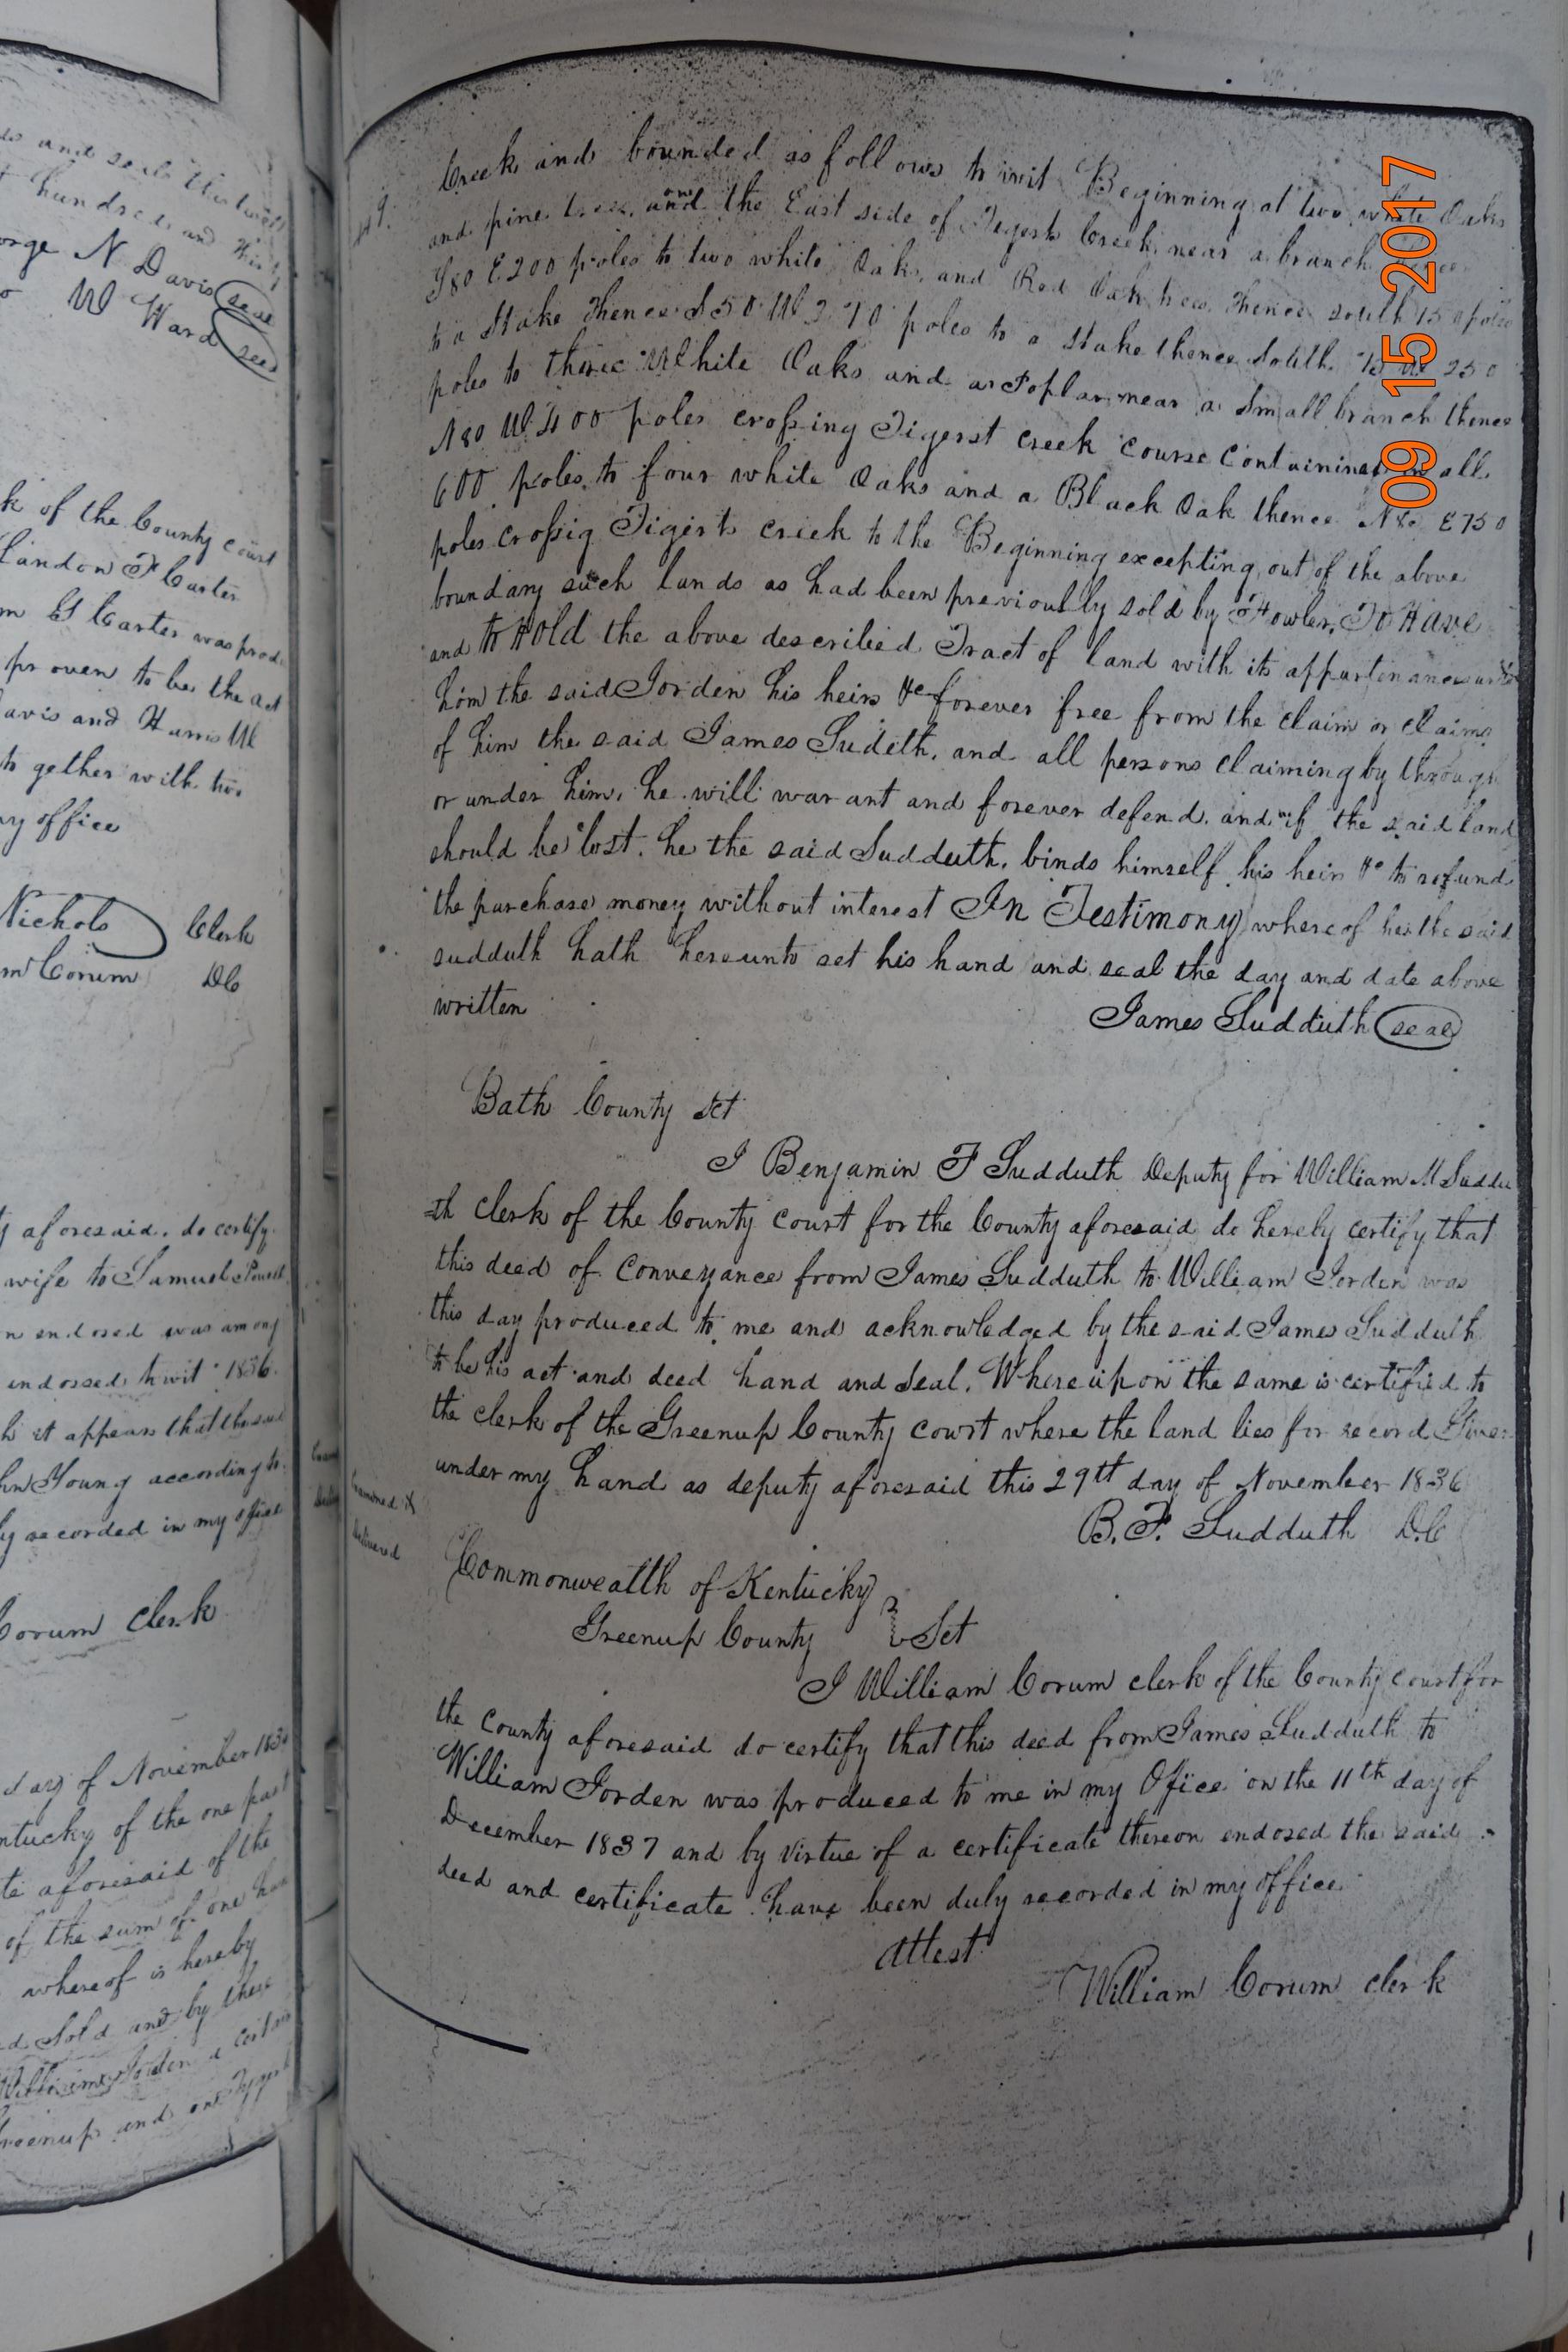 ds and seals this
hundred and
George N Davis seal
W Ward seal
k of the County court
Landon F Carter
m G Carter was prod
proven to be the act
avis and Harris W
together with
my office
Nichols Clerk
m Corum DC
y aforesaid. do certify
wife to Samuel
n endosed was among
endossed towit 1836.
h it appears that the said
hn Young according to
ly recorded in my office
Corum Clerk
day of November 183
ntucky of the one part
te aforesaid of the
of the sum of one hun
whereof is hereby
d Sold and by these
William Jorden a certain
Greenup and on Tygert
Creek and bounded as follows to wit Beginning at two white Oaks
and pine trees, and one the East side of Tygerts Creek near a branch thence
S80 E 200 poles to two white Oaks, and Red Oak trees, thence south 150 poles
to a Stake Thence S 50 W 270 poles to a stake thence South W 250
poles to three White Oaks and a Poplar near a small branch thence
N80 W 400 poles crossing Tigerst creek course containing in all
600 poles to four white Oaks and a Black Oak thence N E 750
poles crossig Tigerts creek to the Beginning excepting out of the above
boundary such lands as had been previously sold by Fowler. To Have
and to Hold the above described Tract of land with its appurtinances
him the said Jorden his heirs &c forever free from the claim or claims
of him the said James Sudeth, and all persons claiming by through
or under him, he will warant and forever defend. and if the said land
should be lost. he the said Sudduth, binds himself his heirs &c to refund
the purchase money without interest In Testimony whereof he the said
sudduth hath hereunto set his hand and seal the day and date above
written
James Sudduth seal
Bath County Sct
I Benjamin F Sudduth Deputy for William M Suddu
th clerk of the County court for the County aforesaid do hereby certify that
this deed of Conveyance from James Sudduth to William Jorden was
this day produced to me and acknowledged by the said James Sudduth
to be his act and deed hand and Seal. Whereupon the same is certified to
the clerk of the Greenup County court where the land lies for record Given
under my hand as deputy aforesaid this 29th day of November 1836
B. F. Sudduth D.C
Examined &
delivered
Commonwealth of Kentucky
Greenup County Sct
I William Corum clerk of the County court for
the County aforesaid do certify that this deed from James Sudduth to
William Jorden was produced to me in my Ofice on the 11th day of
December 1837 and by virtue of a certificate thereon endosed the said
deed and certificate have been duly recorded in my office
Attest
William Corum clerk
09 15 2017